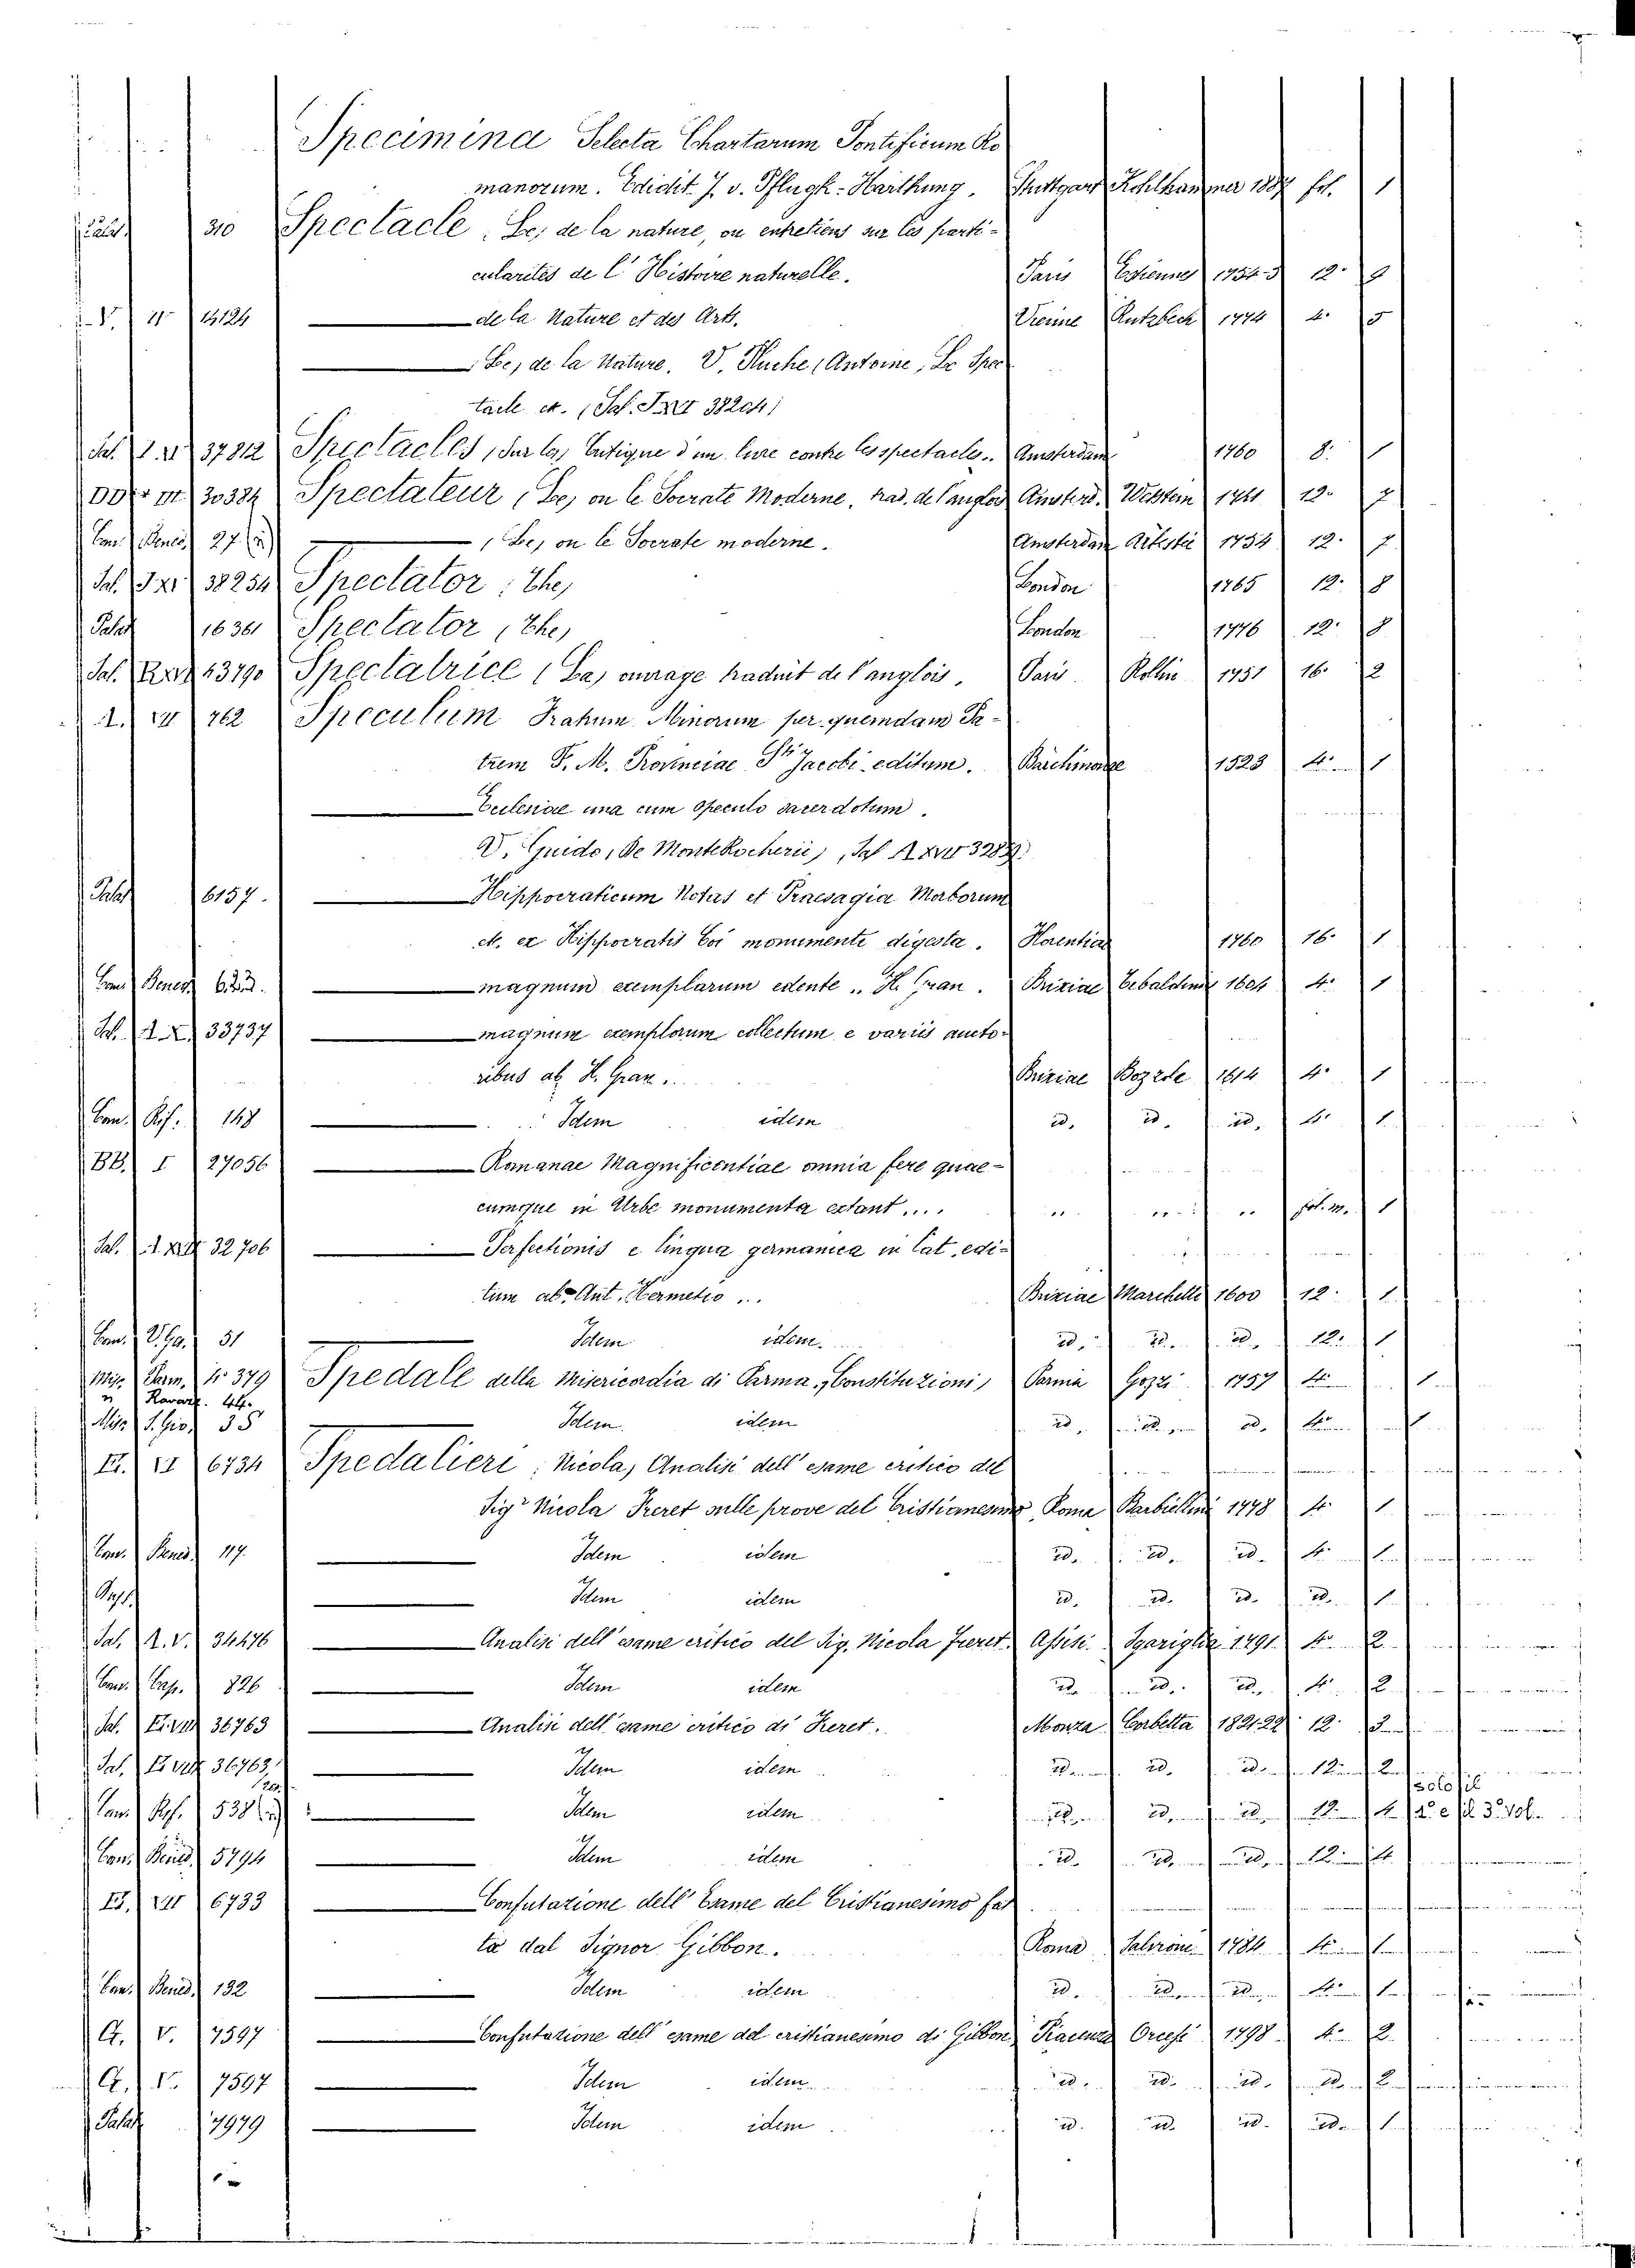 Specimina Selecta Chartarum Pontificum Ro
manorum. Edidit J. v. Pflugk-Harttung. Stuttgart Kohlhammer 1887 fol. 1
Palat. 310 Spectacle, Le, de la nature, ou entretiens sur les parti-
cularités de l'Histoire naturelle. Paris Estienne 1754-5 12° 9
V. 14124 de la Nature et des Arts. Vienne Kutzbech 1774 4° 5
Le, de la Nature. V. Pluche (Antoine, Le Spec
tacle et. (Sal. 38204)
Sal. 37812 Spectacles, (Sur les) Critique d'un livre contre les spectacles. Amsterdam 1760 8° 1
DD 30384 Spectateur, (Le) ou le Socrate Moderne, trad. de l'anglois Amsterd. Wetstein 1741 12° 7
Con. Bened. 27 (Le) ou le Socrate moderne. Amsterdam Arkstée 1754 12° 7
Sal. 38254 Spectator, The, London 1765 12° 8
Palat. 16361 Spectator, (The) London 1776 12° 8
Sal. 43790 Spectatrice (La) ouvrage traduit de l'anglois. Paris Rollin 1751 16° 2
762 Speculum Fratrum Minorum per quemdam Pa-
trem F. M. Provinciae Sti Jacobi editum. 1523 4° 1
Ecclesiae una cum speculo sacerdotum.
V. Guido, (De MonteRocherii), Sal. 3288
Palat. 6157. Hippocraticum Notas et Praesagia Morborum
et. ex Hippocratis Coi monumentis digesta. Florentiae 1760 16° 1
Conv. Bened. 623. magnum exemplarum edente .. H. Gran. Brixiae 1604 4° 1
Sal. 33737 magnum exemplorum collectum e variis aucto-
ribus ab H. Gran .. Brixiae Bozzole 1614 4° 1
Con. Rif. 148 Idem idem id. id. id. 4° 1
BB. I 27056 Romanae Magnificentiae omnia fere quae-
cumque in Urbe monumenta extant.... .. .. .. fol. m. 1
Sal. 32706 Perfectionis e lingua germanica in lat. edi-
tum ab Ant. Hermetio ... Brixiae Marchetti 1600 12° 1
51 Idem idem. id. id. id. 12° 1
Mis. Parm. 4° 379 Spedale della Misericordia di Parma, (Constituzioni) Parma Gozzi 1757 4° 1
" Ravazz. 44.
Mis. S. Gio. 35 Idem idem id. id. id. 4° 1
6734 Spedalieri, Nicola, Analisi dell'esame critico del
Sigr Nicola Freret sulle prove del Cristianesimo, Roma Barbiellini 1778 4° 1
Conv. Bened. 117. Idem idem id. id. id. 4° 1
Idem idem id. id. id. id. 1
Sal. A. V. 34476 Analisi dell'esame critico del Sig. Nicola Freret. Assisi Sgariglia 1791 4° 2
Conv. Cap. 826 Idem idem id. id. id. 4° 2
Sal. 36763 Analisi dell'esame critico di Freret. Monza Corbetta 1821-22 12° 3
Sal. 36763 Idem idem id. id. id. 12° 2
Conv. Rif. 538 Idem idem id. id. id. 12° 4 solo il 1° e il 3° vol.
Conv. Bened. 5794 Idem idem id. id. id. 12° 4
6733 Confutazione dell'Esame del Cristianesimo fat
ta dal Signor Gibbon. Roma Salvioni 1784 4° 1
Conv. Bened. 132 Idem idem id. id. id. 4° 1
V. 7597 Confutazione dell'esame del cristianesimo di Gibbon Piacenza Orcesi 1798 4° 2
V. 7597 Idem idem id. id. id. id. 2
Palat. 7979 Idem idem id. id. id. id. 1